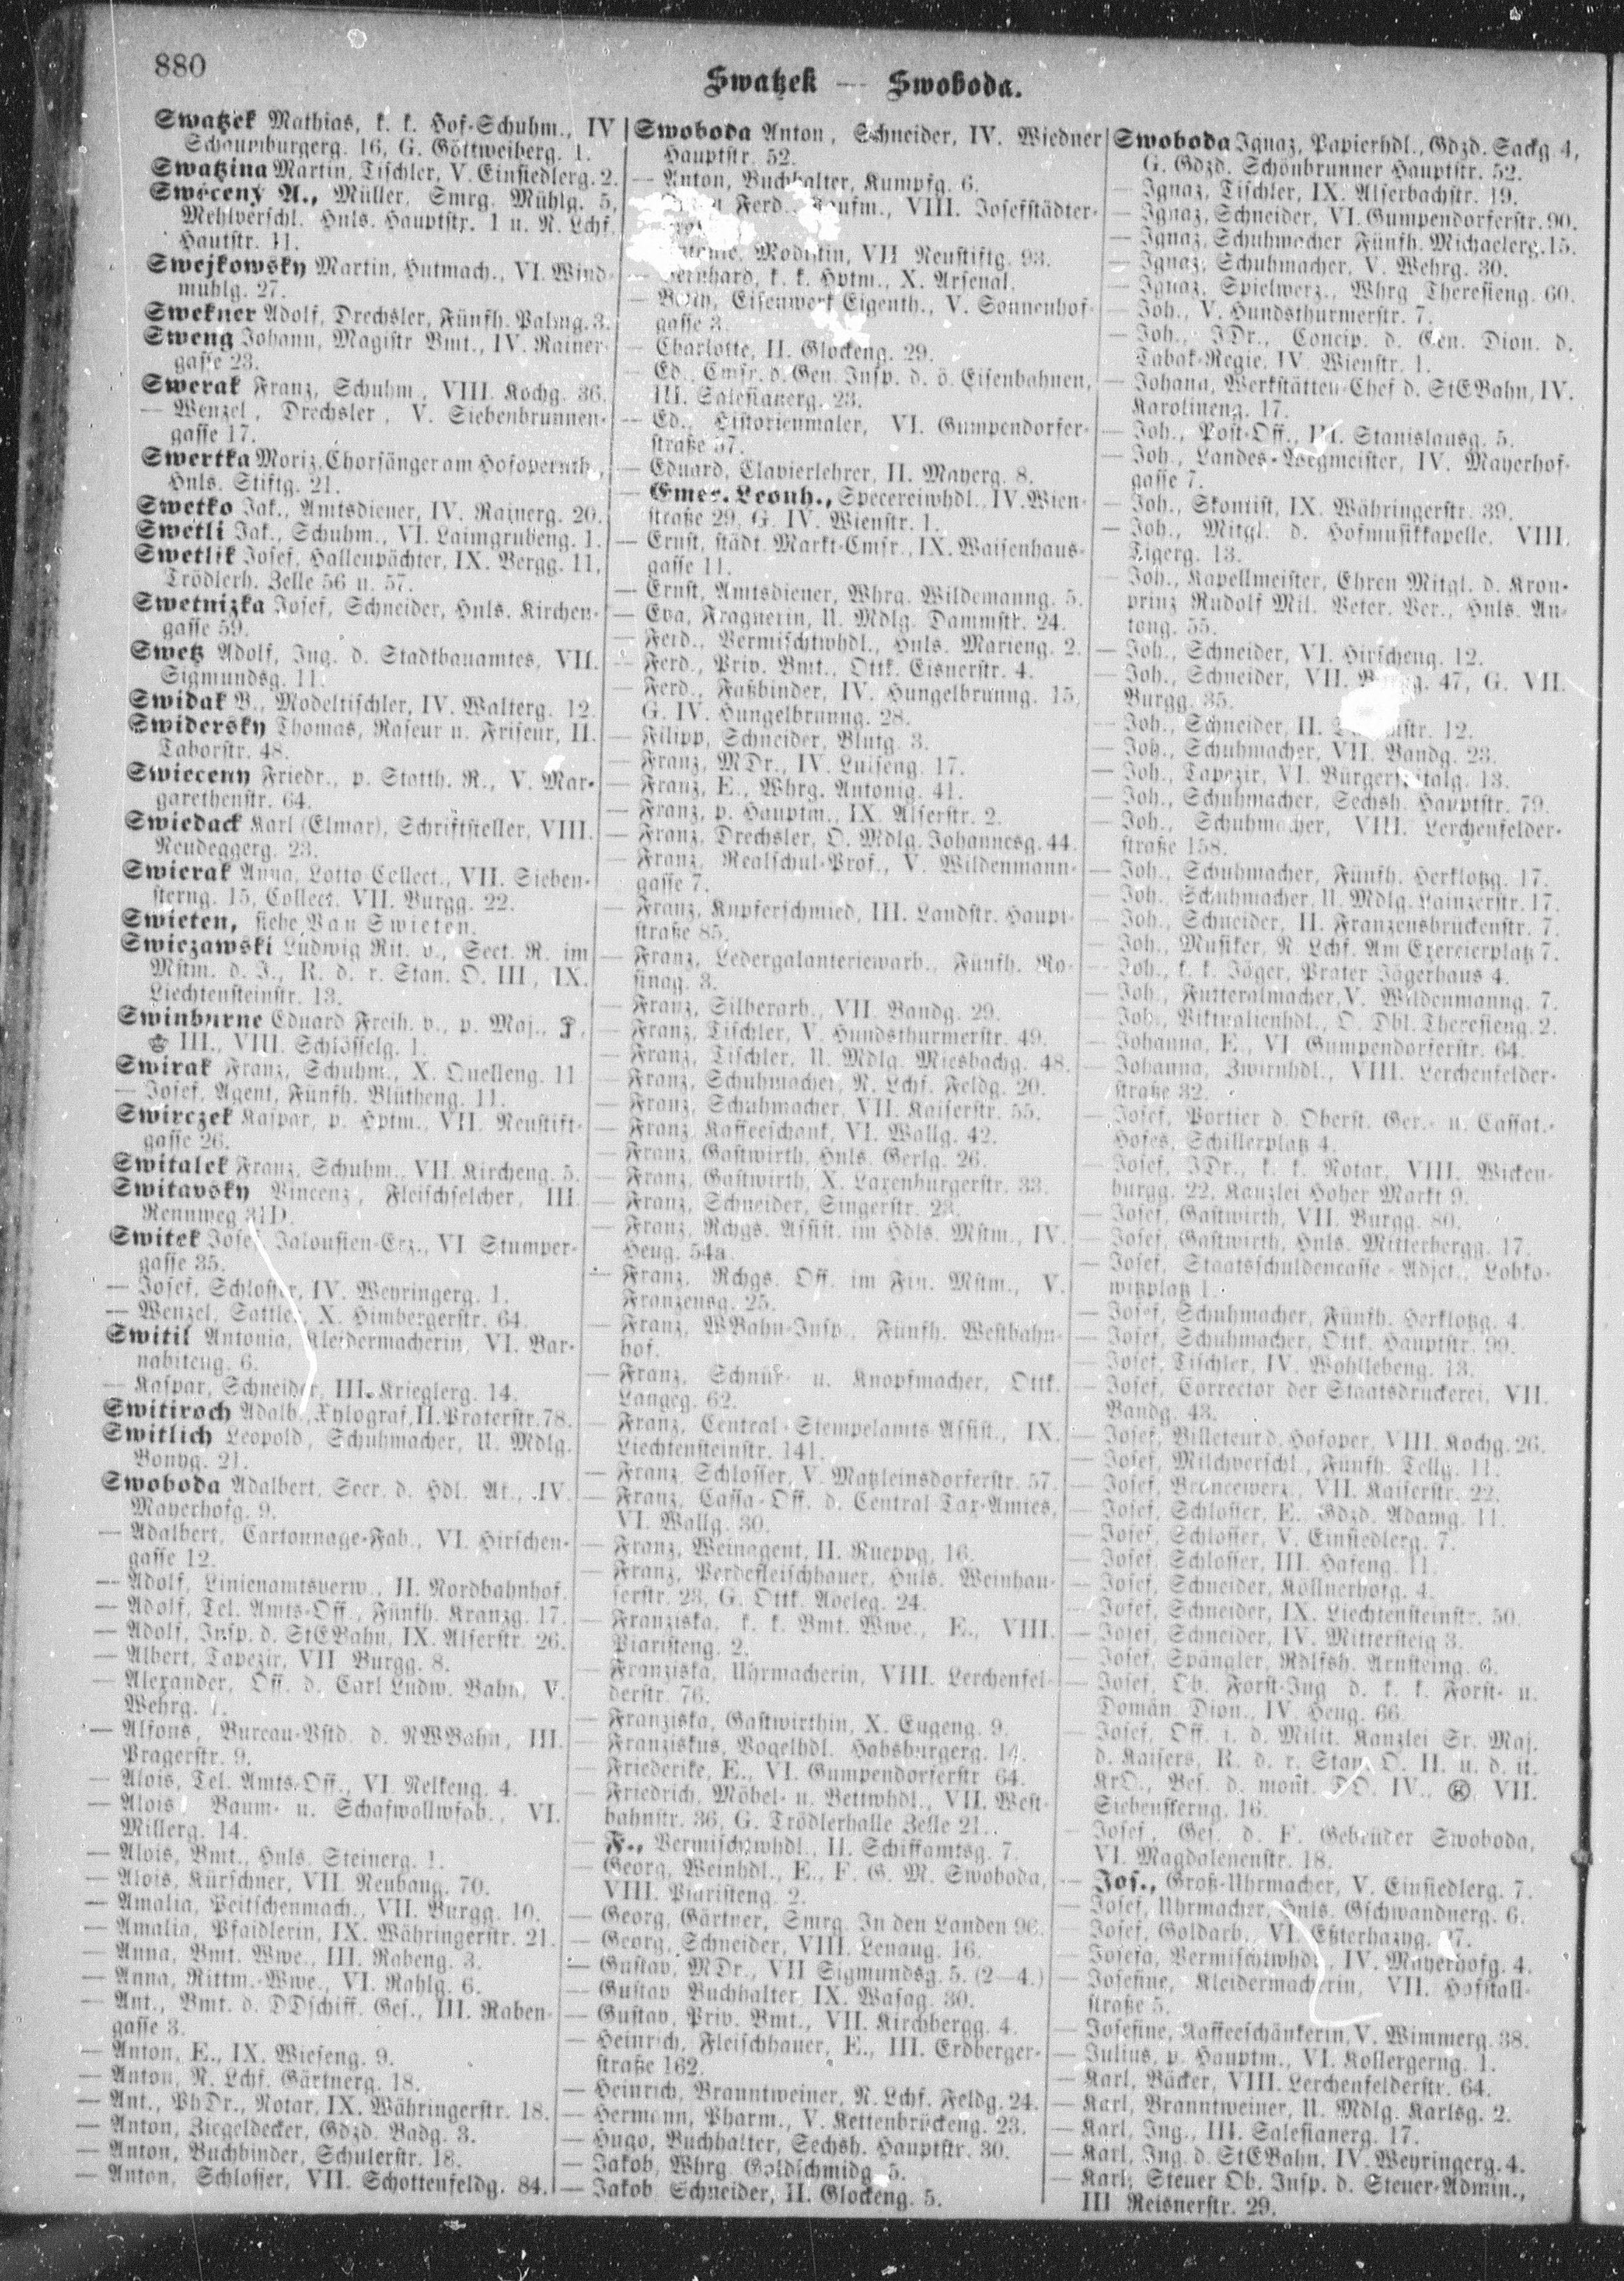 880
Swatzek — Swoboda.
Swatzek Mathias, k. k. Hof-Schuhm., IV
Schaumburgerg. 16, G. Göttweiberg. 1.
Swatzina Martin, Tischler, V. Einsiedlerg. 2.
Swéceny A., Müller, Smrg. Mühlg. 5,
Mehlverschl. Hnls. Hauptstr. 1 u. N. Lchf.
Hautstr. 11.
Swejkowsky Martin, Hutmach., VI. Wind-
mühlg. 27.
Swekner Adolf, Drechsler, Fünfh. Palmg. 3.
Sweng Johann, Magistr Bmt., IV. Rainer-
gasse 23.
Swerak Franz, Schuhm., VIII. Kochg. 36.
— Wenzel, Drechsler, V. Siebenbrunnen-
gasse 17.
Swertka Moriz, Chorsänger am Hofopernth.,
Hnls. Stiftg. 21.
Swetko Jak., Amtsdiener, IV. Rainerg. 20.
Swetli Jak., Schuhm., VI. Laimgrubeng. 1.
Swetlik Josef, Hallenpächter, IX. Bergg. 11,
Trödlerh. Zelle 56 u. 57.
Swetnizka Josef, Schneider, Hnls. Kirchen-
gasse 59.
Swetz Adolf, Ing. d. Stadtbauamtes, VII.
Sigmundsg. 11.
Swidak B., Modeltischler, IV. Walterg. 12.
Swidersky Thomas, Raseur u. Friseur, II.
Taborstr. 48.
Swieceny Friedr., p. Statth. R., V. Mar-
garethenstr. 64.
Swiedack Karl (Elmar), Schriftsteller, VIII.
Neudeggerg. 23.
Swierak Anna, Lotto Collect., VII. Sieben-
sterng. 15, Collect. VII. Burgg. 22.
Swieten, siehe Van Swieten.
Swiezawski Ludwig Rit. v., Sect. R. im
Mstm. d. J., R. d. r. Stan. O. III, IX.
Liechtensteinstr. 13.
Swinburne Eduard Freih. v., p. Maj.,
III., VIII. Schlösselg. 1.
Swirak Franz, Schuhm., X. Quelleng. 11
— Josef, Agent, Fünfh. Blütheng. 11.
Swirczek Kaspar, p. Hptm., VII. Neustift-
gasse 26.
Switalek Franz, Schuhm., VII. Kircheng. 5.
Switavsky Vincenz, Fleischselcher, III.
Rennweg 31D.
Switek Josef, Jalousien-Erz., VI Stumper-
gasse 35.
— Josef, Schlosser, IV. Weyringerg. 1.
— Wenzel, Sattler, X. Himbergerstr. 64.
Switil Antonia, Kleidermacherin, VI. Bar-
nabiteng. 6.
— Kaspar, Schneider, III. Krieglerg. 14.
Switiroch Adalb., Xylograf, II. Praterstr. 78.
Switlich Leopold, Schuhmacher, U. Mdlg.
Bonyg. 21.
Swoboda Adalbert, Secr. d. Hdl. Ak., IV.
Mayerhofg. 9.
— Adalbert, Cartonnage-Fab., VI. Hirschen-
gasse 12.
— Adolf, Linienamtsverw., II. Nordbahnhof.
— Adolf, Tel. Amts-Off., Fünfh. Kranzg. 17.
— Adolf, Insp. d. StEBahn, IX. Alserstr. 26.
— Albert, Tapezir, VII Burgg. 8.
— Alexander, Off. d. Carl Ludw. Bahn, V.
Wehrg. 1.
— Alfons, Bureau-Vstd. d. NWBahn, III.
Pragerstr. 9.
— Alois, Tel. Amts-Off., VI. Nelkeng. 4.
— Alois Baum- u. Schafwollwfab., VI.
Millerg. 14.
— Alois, Bmt., Hnls. Steinerg. 1.
— Alois, Kürschner, VII. Neubaug. 70.
— Amalia, Peitschenmach., VII. Burgg. 10.
— Amalia, Pfaidlerin, IX. Währingerstr. 21.
— Anna, Bmt. Wwe., III. Rabeng. 3.
— Anna, Rittm.-Wwe., VI. Rahlg. 6.
— Ant., Bmt. d. DDschiff. Ges., III. Raben-
gasse 3.
— Anton, E., IX. Wieseng. 9.
— Anton, N. Lchf. Gärtnerg. 18.
— Ant., PhDr., Notar, IX. Währingerstr. 18.
— Anton, Ziegeldecker, Gdzd. Badg. 3.
— Anton, Buchbinder, Schulerstr. 18.
— Anton, Schlosser, VII. Schottenfeldg. 84.
Swoboda Anton, Schneider, IV. Wiedner
Hauptstr. 52.
— Anton, Buchhalter, Kumpfg. 6.
Ferd., Kaufm., VIII. Josefstädter-
Modistin, VII Neustiftg. 93.
— Bernhard, k. k. Hptm., X. Arsenal.
— Eisenwerk Eigenth., V. Sonnenhof-
gasse 3.
— Charlotte, II. Glockeng. 29.
— Ed., Cmsr. d. Gen. Insp. d. ö. Eisenbahnen,
III. Salesianerg. 23.
— Ed., Historienmaler, VI. Gumpendorfer-
straße 37.
— Eduard, Clavierlehrer, II. Mayerg. 8.
— Emer. Leonh., Specereiwhdl., IV. Wien-
straße 29, G. IV. Wienstr. 1.
— Ernst, städt. Markt-Cmsr., IX. Waisenhaus-
gasse 11.
— Ernst, Amtsdiener, Whrg. Wildemanng. 5.
— Eva, Fragnerin, U. Mdlg. Dammstr. 24.
— Ferd., Vermischtwhdl., Hnls. Marieng. 2.
— Ferd., Priv. Bmt., Ottk. Eisnerstr. 4.
— Ferd., Faßbinder, IV. Hungelbrunng. 15,
G. IV. Hungelbrunng. 28.
— Filipp, Schneider, Blutg. 3.
— Franz, MDr., IV. Luiseng. 17.
— Franz, E., Whrg. Antonig. 41.
— Franz, p. Hauptm., IX. Alserstr. 2.
— Franz, Drechsler, O. Mdlg. Johannesg. 44.
— Franz, Realschul-Prof., V. Wildenmann-
gasse 7.
— Franz, Kupferschmied, III. Landstr. Haupt-
straße 85.
— Franz, Ledergalanteriewarb., Fünfh. Ro-
sinag. 3.
— Franz, Silberarb., VII. Bandg. 29.
— Franz, Tischler, V. Hundsthurmerstr. 49.
— Franz, Tischler, U. Mdlg. Miesbachg. 48.
— Franz, Schuhmacher, N. Lchf. Feldg. 20.
— Franz, Schuhmacher, VII. Kaiserstr. 55.
— Franz, Kaffeeschank, VI. Wallg. 42.
— Franz, Gastwirth, Hnls. Gerlg. 26.
— Franz, Gastwirth, X. Laxenburgerstr. 33.
— Franz, Schneider, Singerstr. 23.
— Franz, Rchgs. Assist. im Hdls. Mstm., IV.
Heug. 54a.
— Franz, Rchgs. Off. im Fin. Mstm., V.
Franzensg. 25.
— Franz, WBahn-Insp., Fünfh. Westbahn-
hof.
— Franz, Schnür- u. Knopfmacher, Ottk.
Langeg. 62.
— Franz, Central-Stempelamts-Assist., IX.
Liechtensteinstr. 141.
— Franz, Schlosser, V. Matzleinsdorferstr. 57.
— Franz, Cassa-Off. d. Central Tax-Amtes,
VI. Wallg. 30.
— Franz, Weinagent, II. Rueppg. 16.
— Franz, Perdefleischhauer, Hnls. Weinhau-
serstr. 23, G. Ottk. Adeleg. 24.
— Franziska, k. k. Bmt. Wwe., E., VIII.
Piaristeng. 2.
— Franziska, Uhrmacherin, VIII. Lerchenfel-
derstr. 76.
— Franziska, Gastwirthin, X. Eugeng. 9.
— Franziskus, Vogelhdl. Habsburgerg. 14.
— Friederike, E., VI. Gumpendorferstr 64.
— Friedrich, Möbel- u. Bettwhdl., VII. West-
bahnstr. 36, G. Trödlerhalle Zelle 21.
— F., Vermischtwhdl., II. Schiffamtsg. 7.
— Georg, Weinhdl., E., F. G. M. Swoboda,
VIII. Piaristeng. 2.
— Georg, Gärtner, Smrg. In den Landen 96.
— Georg, Schneider, VIII. Lenaug. 16.
— Gustav, MDr., VII Sigmundsg. 5. (2—4.)
— Gustav Buchhalter, IX. Wasag. 30.
— Gustav, Priv. Bmt., VII. Kirchbergg. 4.
— Heinrich, Fleischhauer, E., III. Erdberger-
straße 162.
— Heinrich, Branntweiner, N. Lchf. Feldg. 24.
— Hermann, Pharm., V. Kettenbrückeng. 23.
— Hugo, Buchhalter, Sechsh. Hauptstr. 30.
— Jakob, Whrg Goldschmidg. 5.
— Jakob Schneider, II. Glockeng. 5.
Swoboda Ignaz, Papierhdl., Gdzd. Sackg. 4,
G. Gdzd. Schönbrunner Hauptstr. 52.
— Ignaz, Tischler, IX. Alserbachstr. 19.
— Ignaz, Schneider, VI. Gumpendorferstr. 90.
— Ignaz, Schuhmacher Fünfh. Michaelerg. 15.
— Ignaz, Schuhmacher, V. Wehrg. 30.
— Ignaz, Spielwerz., Whrg Theresieng. 60.
— Joh., V. Hundsthurmerstr. 7.
— Joh., JDr., Concip. d. Gen. Dion. d.
Tabak-Regie, IV Wienstr. 1.
— Johann, Werkstätten-Chef d. StEBahn, IV.
Karolineng. 17.
— Joh., Post-Off., III. Stanislausg. 5.
— Joh., Landes-Wegmeister, IV. Mayerhof-
gasse 7.
— Joh., Skontist, IX. Währingerstr. 39.
— Joh., Mitgl. d. Hofmusikkapelle, VIII.
Tigerg. 13.
— Joh., Kapellmeister, Ehren Mitgl. d. Kron-
prinz Rudolf Mil. Veter. Ver., Hnls. An-
tong. 55.
— Joh., Schneider, VI. Hirscheng. 12.
— Joh., Schneider, VII. 47, G. VII.
Burgg. 35.
— Joh., Schneider, II. 12.
— Joh., Schuhmacher, VII. Bandg. 23.
— Joh., Tapezir, VI. Bürgerspitalg. 13.
— Joh., Schuhmacher, Sechsh. Hauptstr. 79.
— Joh., Schuhmacher, VIII. Lerchenfelder-
straße 158.
— Joh., Schuhmacher, Fünfh. Herklotzg. 17.
— Joh. Schuhmacher, U. Mdlg. Lainzerstr. 17.
— Joh., Schneider, II. Franzensbrückenstr. 7.
— Joh., Musiker, N. Lchf. Am Exercierplatz 7.
— Joh., k. k. Jäger, Prater Jägerhaus 4.
— Joh., Futteralmacher, V. Wildenmanng. 7.
— Joh., Viktualienhdl., O. Dbl. Theresieng. 2.
— Johanna, E., VI. Gumpendorferstr. 64.
— Johanna, Zwirnhdl., VIII. Lerchenfelder-
straße 32.
— Josef, Portier d. Oberst. Ger.- u. Cassat.-
Hofes, Schillerplatz 4.
— Josef, JDr., k. k. Notar, VIII. Wicken-
burgg. 22, Kanzlei Hoher Markt 9.
— Josef, Gastwirth, VII. Burgg. 80.
— Josef, Gastwirth, Hnls. Mitterbergg. 17.
— Josef, Staatsschuldencasse-Adjct., Lobko-
witzplatz 1.
— Josef, Schuhmacher, Fünfh. Herklotzg. 4.
— Josef, Schuhmacher, Ottk. Hauptstr. 99.
— Josef, Tischler, IV. Wohllebeng. 13.
— Josef, Corrector der Staatsdruckerei, VII.
Bandg. 43.
— Josef, Billeteur d. Hofoper, VIII. Kochg. 26.
— Josef, Milchverschl., Fünfh. Tellg. 11.
— Josef, Broncewerz., VII. Kaiserstr. 22.
— Josef, Schlosser, E., Gdzd. Adamg. 11.
— Josef, Schlosser, V. Einsiedlerg. 7.
— Josef, Schlosser, III. Hafeng. 11.
— Josef, Schneider, Köllnerhofg. 4.
— Josef, Schneider, IX. Liechtensteinstr. 50.
— Josef, Schneider, IV. Mittersteig 3.
— Josef, Spängler, Rdlfsh. Arnsteing. 6.
— Josef, Ob. Forst-Ing d. k. k. Forst- u.
Domän. Dion., IV. Heug. 66.
— Josef, Off. i. d. Milit. Kanzlei Sr. Maj.
d. Kaisers, R. d. r. Stan O. II. u. d. it.
KrO., Bes. d. mont. DO. IV., Ⓚ, VII.
Siebensterng. 16.
— Josef, Ges. d. F. Gebrüder Swoboda,
VI. Magdalenenstr. 18.
— Jos., Groß-Uhrmacher, V. Einsiedlerg. 7.
— Josef, Uhrmacher, Hnls. Gschwandnerg. 6.
— Josef, Goldarb., VI. Eßterhazyg.
— Josefa, Vermischtwhdl., IV. Mayerhofg. 4.
— Josefine, Kleidermacherin, VII. Hofstall-
straße 5.
— Josefine, Kaffeeschänkerin, V. Wimmerg. 38.
— Julius, p. Hauptm., VI. Kollergerng. 1.
— Karl, Bäcker, VIII. Lerchenfelderstr. 64.
— Karl, Branntweiner, U. Mdlg. Karlsg. 2.
— Karl, Ing., III. Salesianerg. 17.
— Karl, Ing d. StEBahn, IV. Weyringerg. 4.
— Karl, Steuer Ob. Insp. d. Steuer-Admin.,
III Reisnerstr. 29.